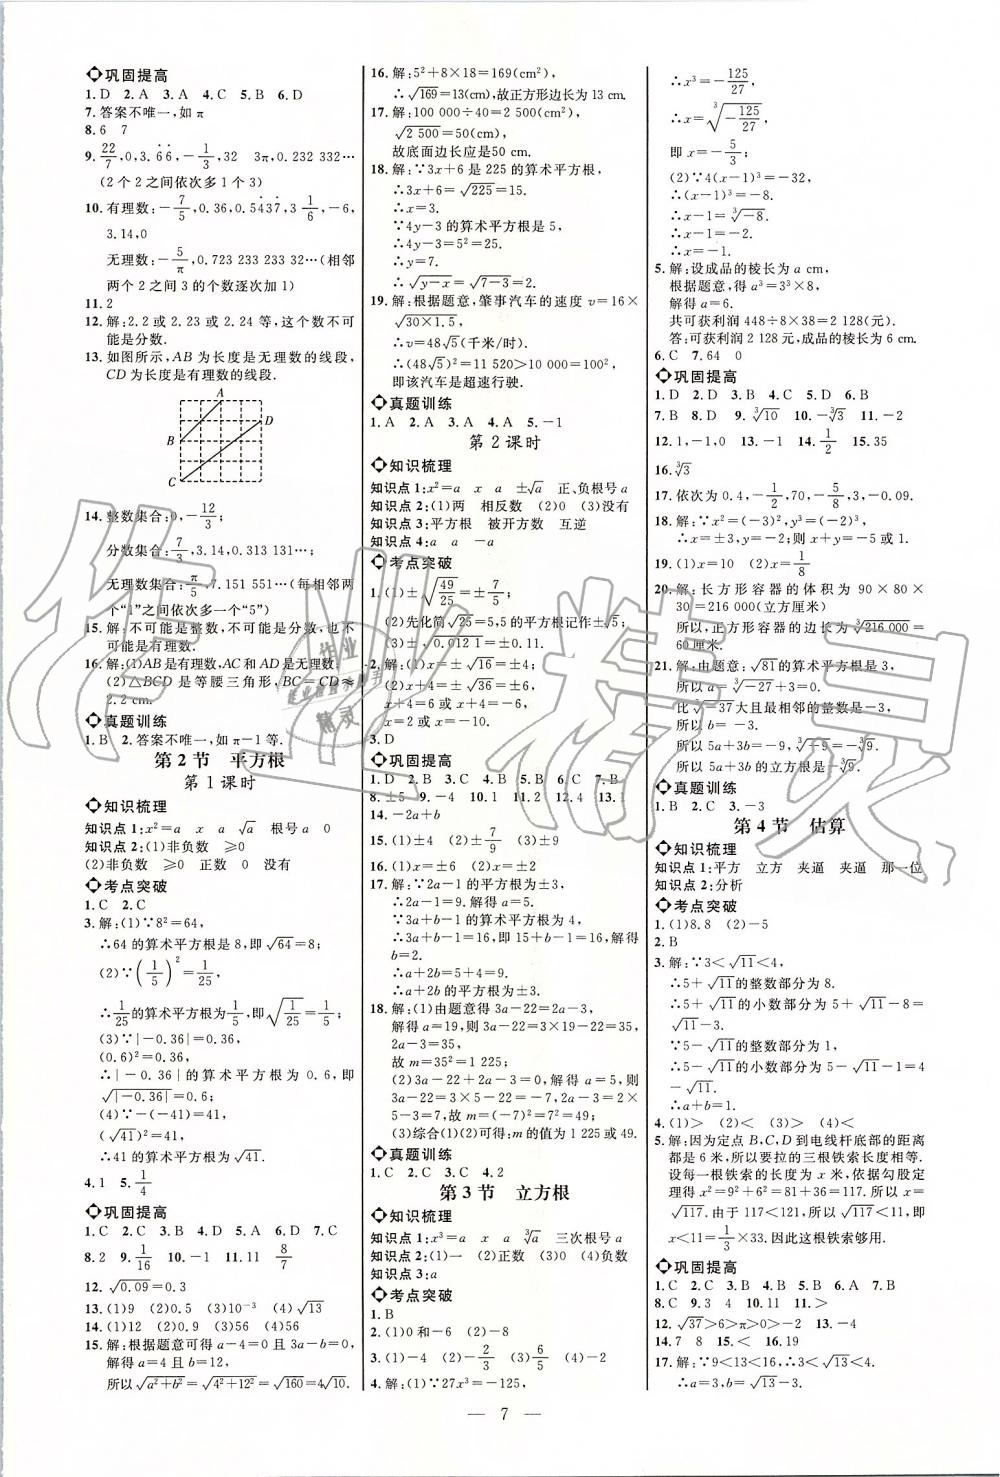 巩固提高
1. D  2. A  3. A  4. C  5. B  6. D
7. 答案不唯一,如 π
8. 6  7
9. 22/7,0,3.6̇6̇,-1/3,32  3π,0.232 332…
(2 个 2 之间依次多 1 个 3)
10. 有理数:-7/5,0.36,0.54̇37̇,3 1/6,-6,
3.14,0
无理数:-5/π,0.723 233 233 32…(相邻
两个 2 之间 3 的个数逐次加 1)
11. 2
12. 解:2.2 或 2.23 或 2.24 等,这个数不可
能是分数.
13. 如图所示,AB 为长度是无理数的线段,
CD 为长度是有理数的线段.
A
B
D
C
14. 整数集合:0,-12/3;
分数集合:7/3,3.14,0.313 131…;
无理数集合:π/5,7.151 551…(每相邻两
个“1”之间依次多一个“5”)
15. 解:不可能是整数,不可能是分数,也不
可能是有理数.
16. 解:(1)AB 是有理数,AC 和 AD 是无理数.
(2)△BCD 是等腰三角形,BC=DC≈
2.2 cm.
真题训练
1. B  2. 答案不唯一,如 π-1 等.
第 2 节  平方根
第 1 课时
知识梳理
知识点 1:x²=a  x  a  √a  根号 a  0
知识点 2:(1)非负数  ≥0
(2)非负数  ≥0  正数  0  没有
考点突破
1. C  2. C
3. 解:(1)∵8²=64,
∴64 的算术平方根是 8,即√64=8;
(2)∵(1/5)²=1/25,
∴1/25的算术平方根为1/5,即√(1/25)=1/5;
(3)∵|-0.36|=0.36,
(0.6)²=0.36,
∴|-0.36|的算术平方根为 0.6,即
√|-0.36|=0.6;
(4)∵-(-41)=41,
(√41)²=41,
∴41 的算术平方根为√41.
4. 1  5. 1/4
巩固提高
1. C  2. C  3. B  4. D  5. A  6. D  7. C
8. 2  9. 1/16  10. -1  11. 11  8/7
12. √0.09=0.3
13. (1)9  (2)0.5  (3)10⁻³  (4)√13
14. (1)12  (2)0.9  (3)56  (4)56
15. 解:根据题意可得 a-4=0 且 b-12=0,
解得 a=4 且 b=12,
所以√(a²+b²)=√(4²+12²)=√160=4√10.
16. 解:5²+8×18=169(cm²)
∴√169=13(cm),故正方形边长为 13 cm.
17. 解:100 000÷40=2 500(cm²),
√2 500=50(cm),
故底面边长应是 50 cm.
18. 解:∵3x+6 是 225 的算术平方根,
∴3x+6=√225=15.
∴x=3.
∵4y-3 的算术平方根是 5,
∴4y-3=5²=25.
∴y=7.
∴√(y-x)=√(7-3)=2.
19. 解:根据题意,肇事汽车的速度 v=16×
√(30×1.5),
∴v=48√5(千米/时).
∴(48√5)²=11 520>10 000=100².
即该汽车是超速行驶.
真题训练
1. A  2. A  3. A  4. A  5. -1
第 2 课时
知识梳理
知识点 1:x²=a  x  a  ±√a  正、负根号 a
知识点 2:(1)两  相反数  (2)0  (3)没有
知识点 3:平方根  被开方数  互逆
知识点 4:a  a  -a
考点突破
1. (1)±√(49/25)=±7/5;
(2)先化简√25=5,5 的平方根记作±√5;
(3)±√0.012 1=±0.11.
2. 解:(1)x=±√16=±4.
(2)x+4=±√36=±6,
x+4=6 或 x+4=-6,
x=2 或 x=-10.
3. D
巩固提高
1. D  2. D  3. A  4. C  5. C  6. C  7. B
8. ±5  9. -4  10. 1  11. 2  12. 4  13. 1
14. -2a+b
15. (1)±4  (2)±7/9  (3)±9
16. (1)±6  (2)±4
17. 解:∵2a-1 的平方根为±3,
∴2a-1=9. 解得 a=5.
∵3a+b-1 的算术平方根为 4,
∴3a+b-1=16,即 15+b-1=16,解得
b=2.
∴a+2b=5+4=9.
∴a+2b 的平方根为±3.
18. 解:(1)由题意得 3a-22=2a-3,
解得 a=19,则 3a-22=3×19-22=35,
2a-3=35,
故 m=35²=1 225;
(2)3a-22+2a-3=0,解得 a=5,则
3a-22=3×5-22=-7,2a-3=2×
5-3=7,故 m=(-7)²=7²=49;
(3)综合(1)(2)可得:m 的值为 1 225 或 49.
真题训练
1. C  2. C  3. C  4. 2
第 3 节  立方根
知识梳理
知识点 1:x³=a  x  a  ∛a  三次根号 a
知识点 2:(1)一  (2)正数  (3)0  (4)负数
知识点 3:a
考点突破
1. B
2. (1)0 和-6  (2)-8
3. (1)-4  (2)-2/3  (3)6/5  (4)5
4. 解:(1)∵27x³=-125,
∴x³=-125/27,
∴x=∛(-125/27),
即 x=-5/3;
(2)∵4(x-1)³=-32,
∴(x-1)³=-8.
∴x-1=∛-8.
∴x-1=-2.
∴x=-1.
5. 解:设成品的棱长为 a cm,
根据题意,得 a³=3³×8,
解得 a=6.
共可获利润 448÷8×38=2 128(元).
答:可获利润 2 128 元,成品的棱长为 6 cm.
6. C  7. 64  0
巩固提高
1. D  2. D  3. B  4. C  5. D  6. B
7. B  8. D  9. ∛10  10. -∛3  11. -2
12. 1,-1,0  13. -1  14. 1/2  15. 35
16. ∛3
17. 依次为 0.4,-1/2,70,-5/8,3,-0.09.
18. 解:∵x²=(-3)²,y³=(-2)³,
∴x=±3,y=-2;则 x+y=-5 或 1.
19. (1)x=10  (2)x=1/8
20. 解:长方形容器的体积为 90×80×
30=216 000(立方厘米)
所以,正方形容器的边长为∛216 000=
60 厘米.
21. 解:由题意:√81的算术平方根是 3,
所以 5a+3=3,所以 5a=0.
比-∛37大且最相邻的整数是-3,
所以 b=-3.
所以 5a+3b=-9,
所以∛(5a+3b)=∛-9=-∛9.
真题训练
1. B  2. C  3. -3
第 4 节  估算
知识梳理
知识点 1:平方  立方  夹逼  夹逼  那一位
知识点 2:分析
考点突破
1. (1)8.8  (2)-5
2. B
3. 解:∵3<√11<4,
∴5+√11的整数部分为 8.
∴5+√11的小数部分为 5+√11-8=
√11-3.
∵5-√11的整数部分为 1,
∴5-√11的小数部分为 5-√11-1=4
-√11.
∴a+b=1.
4. (1)>  (2)<  (3)>  (4)<
5. 解:因为定点 B,C,D 到电线杆底部的距离
都是 6 米,所以要拉的三根铁索长度相等.
设每一根铁索的长度为 x 米,依据勾股定
理得 x²=9²+6²=81+36=117. 所以 x=
√117. 由于 117<121,所以√117<11,即
x<11=1/3×33. 因此这根铁索够用.
巩固提高
1. C  2. C  3. B  4. B  5. C  6. A  7. B
8. C  9. 3  4  10. 11  11. >
12. √37>6>π>0>-2  13. 6
14. 7  8  15. <  16. 19
17. 解:∵9<13<16,∴3<√13<4.
∴a=3,b=√13-3.
— 7 —
作业精灵
作业
精灵